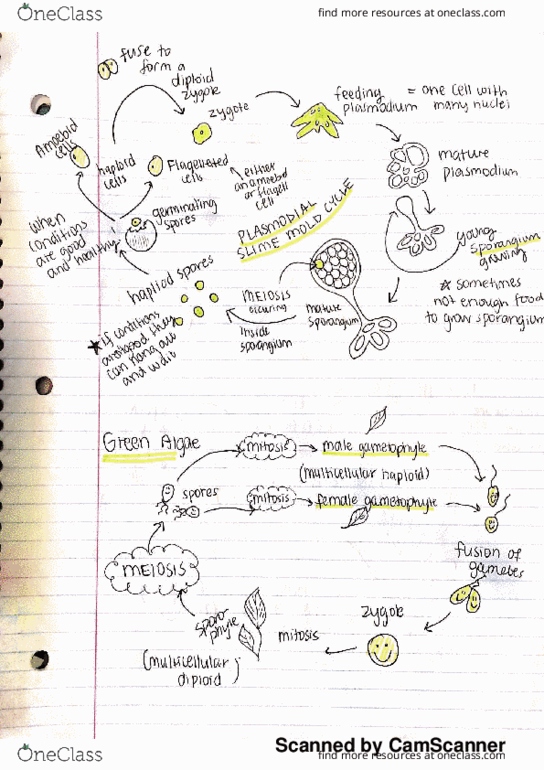 OneClass
find more resources at oneclass.com
fuse to
form a
diploid
zygote
zygote
feeding
plasmodium
= one cell with
many nuclei
mature
plasmodium
young
sporangium
growing
☆ sometimes
not enough food
to grow sporangium
Amoeboid
cells
haploid
cells
Flagellated
cells
either
an amoeboid
or flagell
cell
germinating
spores
when
conditions
are good
and healthy
PLASMODIAL
SLIME MOLD CYCLE
haploid spores
MEIOSIS
occuring
inside
sporangium
mature
sporangium
★ if conditions
they
can hang out
and wait
Green Algae
mitosis
male gametophyte
(multicellular haploid)
spores
mitosis
female gametophyte
MEIOSIS
fusion of
gametes
zygote
mitosis
sporo
phyte
(multicellular
diploid)
Scanned by CamScanner
OneClass
find more resources at oneclass.com